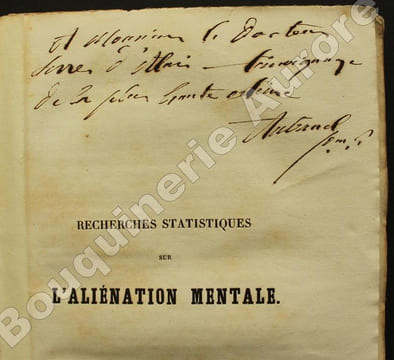 A Monsieur le Docteur
Serres d'Alais - témoignage
de la plus haute estime
RECHERCHES STATISTIQUES
SUR
L'ALIÉNATION MENTALE.
Bouquinerie Aurore